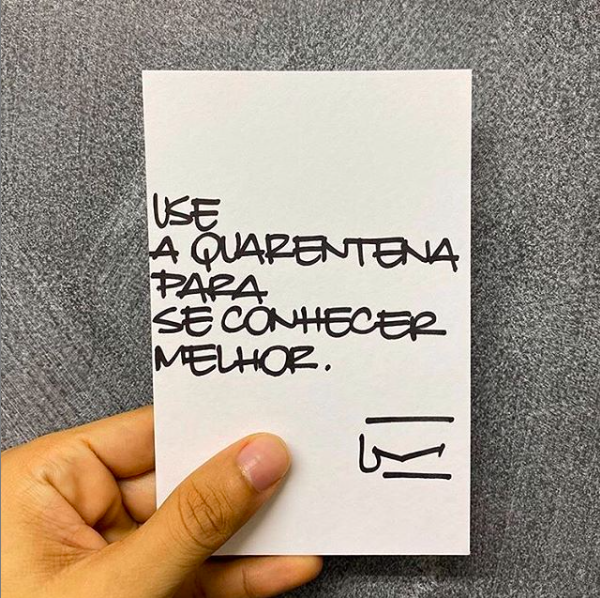 USE
A QUARENTENA
PARA
SE CONHECER
MELHOR.